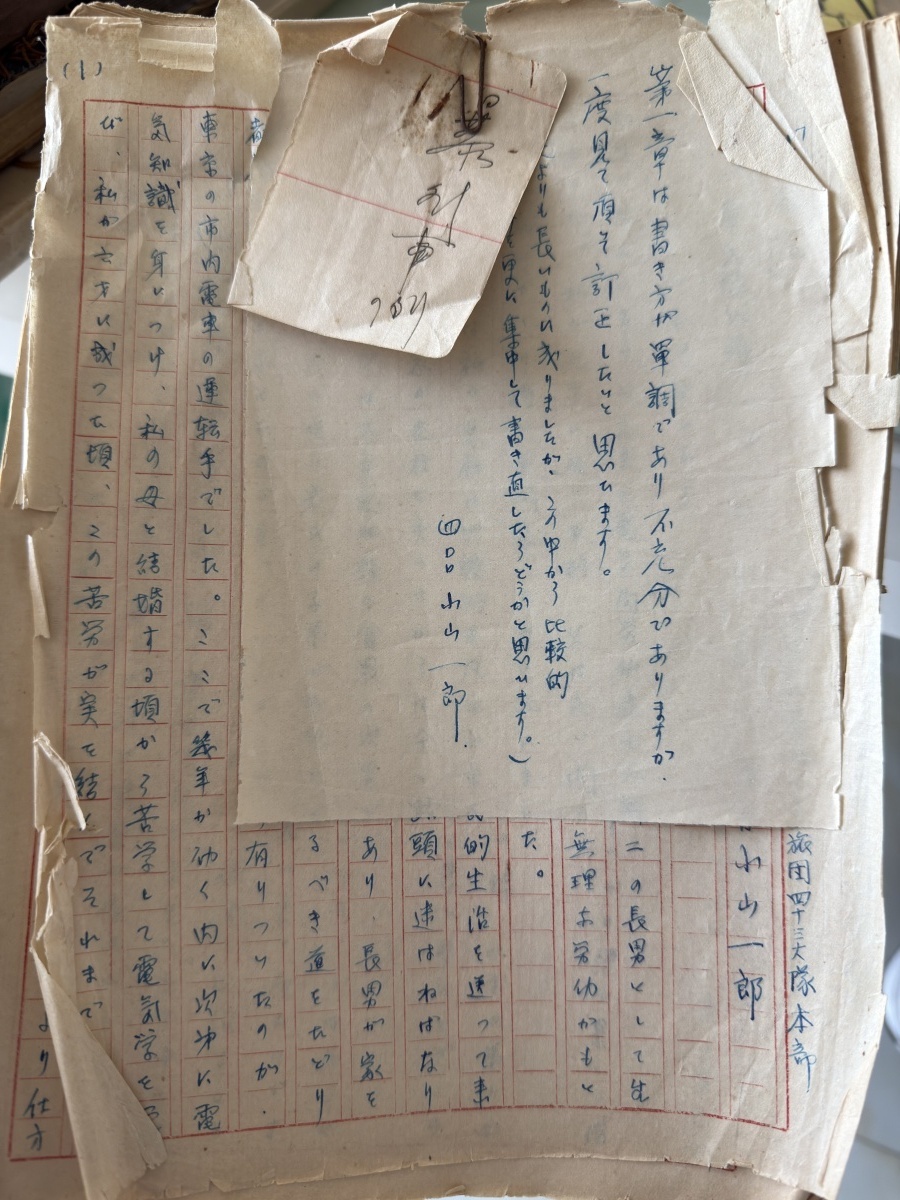 第一章は書き方が単調であり不充分でありますが、
一度見て頂き訂正したいと思ひます。
よりも長いものに成りましたが、この中から比較的
を更に集中して書き直したらどうかと思ひます。)
小山一郎
旅団四十三大隊本部
小山一郎
二の長男として生
無理な労働がもと
た。
的生活を送って来
頭に迷はねばなり
あり、長男が家を
るべき道をたどり
有りついたのが、
者
東京の市内電車の運転手でした。ここで幾年か幼く内に次第に電
気知識を身につけ、私の母と結婚する頃から苦学して電気学を
が、私が六才に成った頃、この苦労が実を結んでそれまで
より仕方
(1)